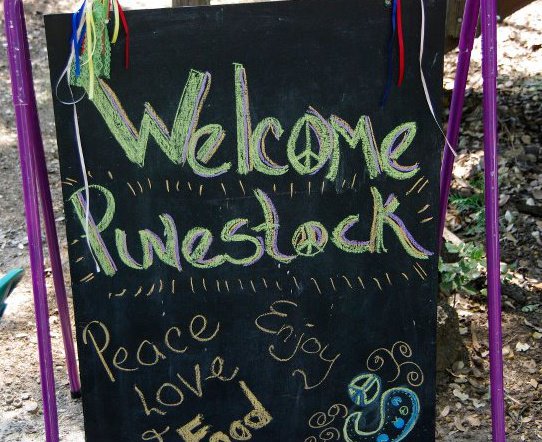 Welcome
Pinestock
Peace
Love
& Food
Enjoy